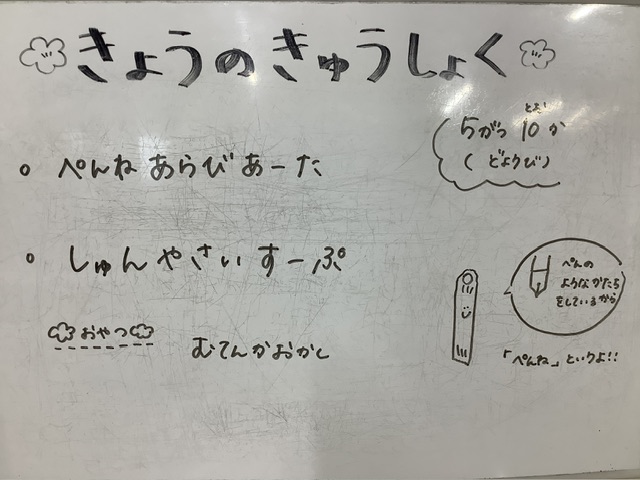 きょうのきゅうしょく
5がつ10か
とおか
(どようび)
ぺんねあらびあーた
しゅんやさいすーぷ
おやつ
むてんかおかし
ぺんの
ようなかたち
をしているから
「ぺんね」というよ!!